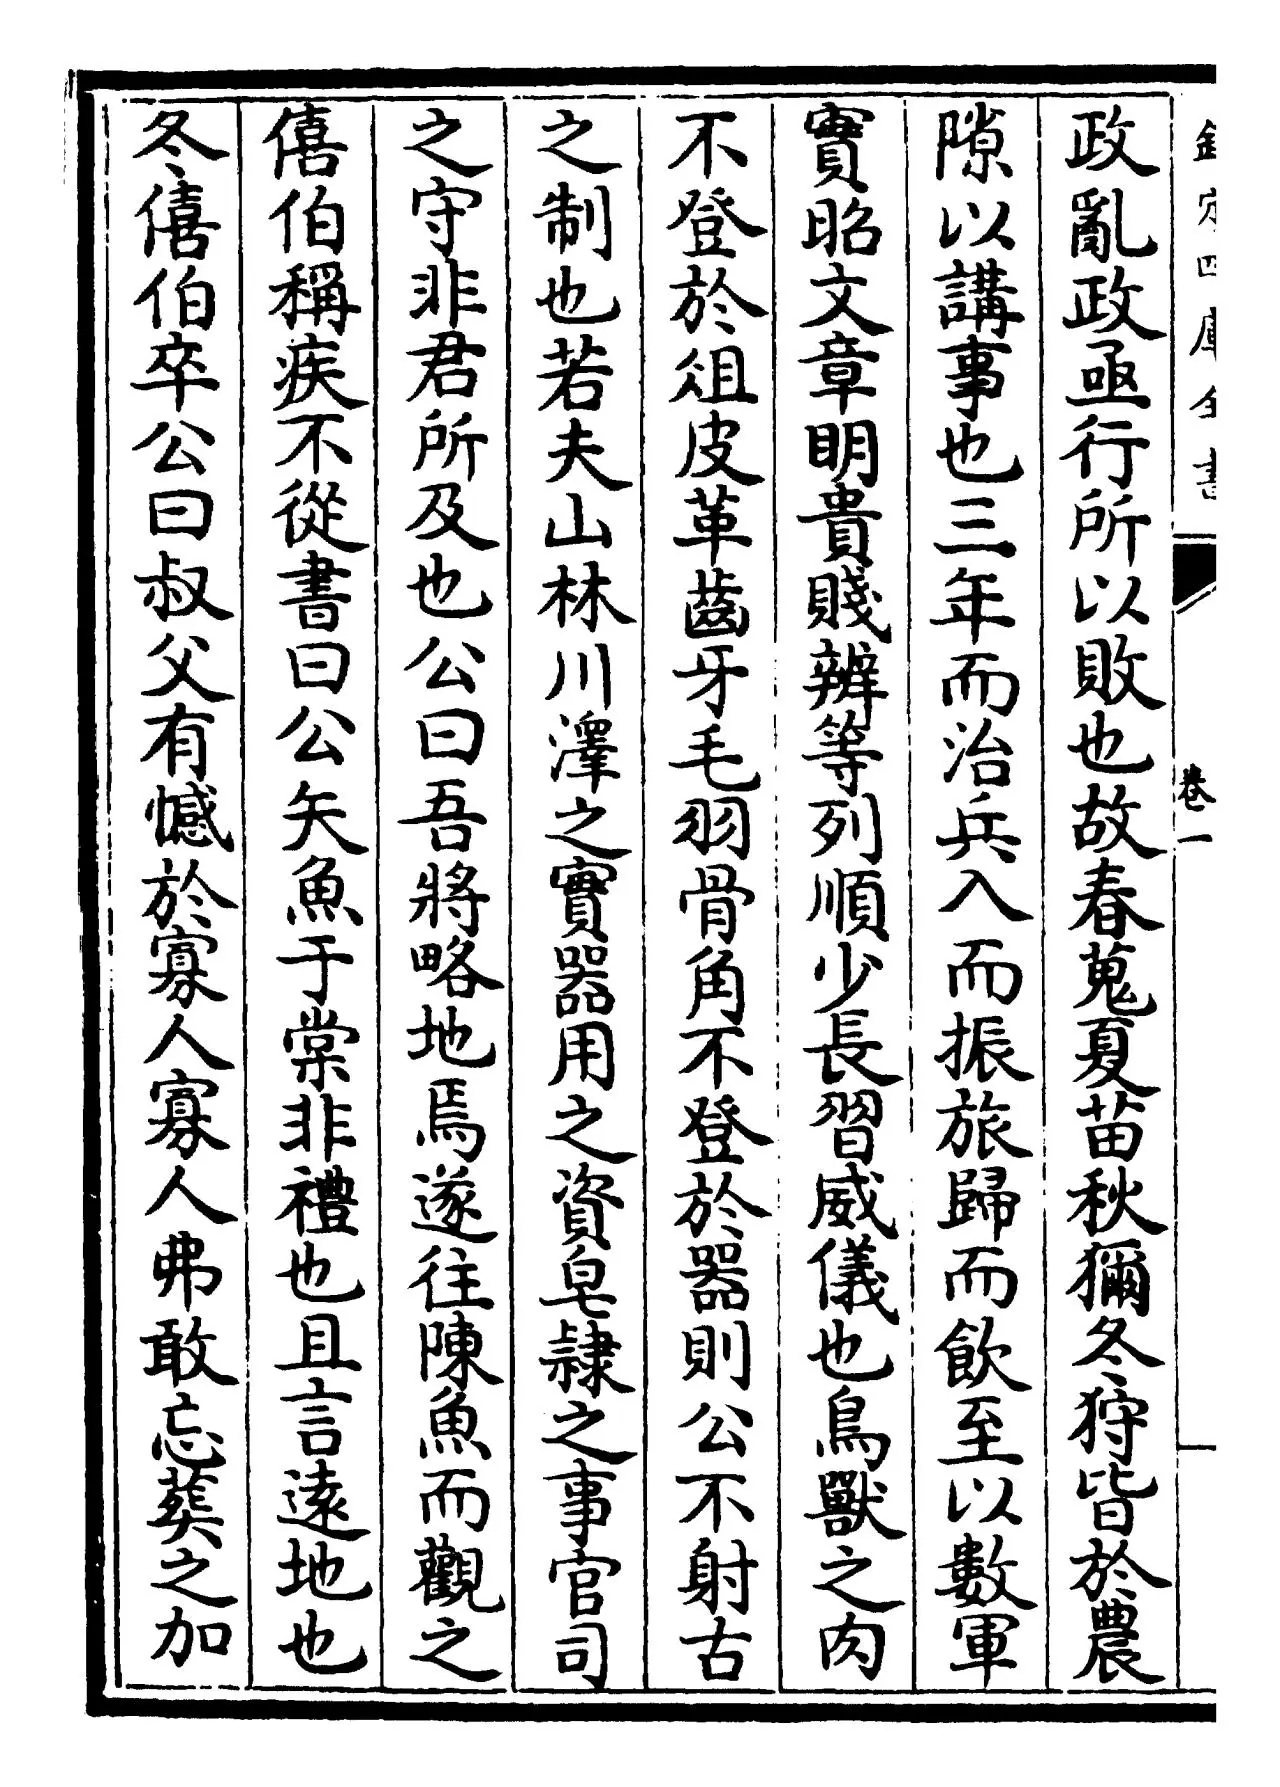 欽定四庫全書
卷一
政亂政亟行所以敗也故春蒐夏苗秋獮冬狩皆於農
隙以講事也三年而治兵入而振旅歸而飲至以數軍
實昭文章明貴賤辨等列順少長習威儀也鳥獸之肉
不登於俎皮革齒牙毛羽骨角不登於器則公不射古
之制也若夫山林川澤之實器用之資皂隸之事官司
之守非君所及也公曰吾將略地焉遂往陳魚而觀之
僖伯稱疾不從書曰公矢魚于棠非禮也且言逺地也
冬僖伯卒公曰叔父有憾於寡人寡人弗敢忘葬之加